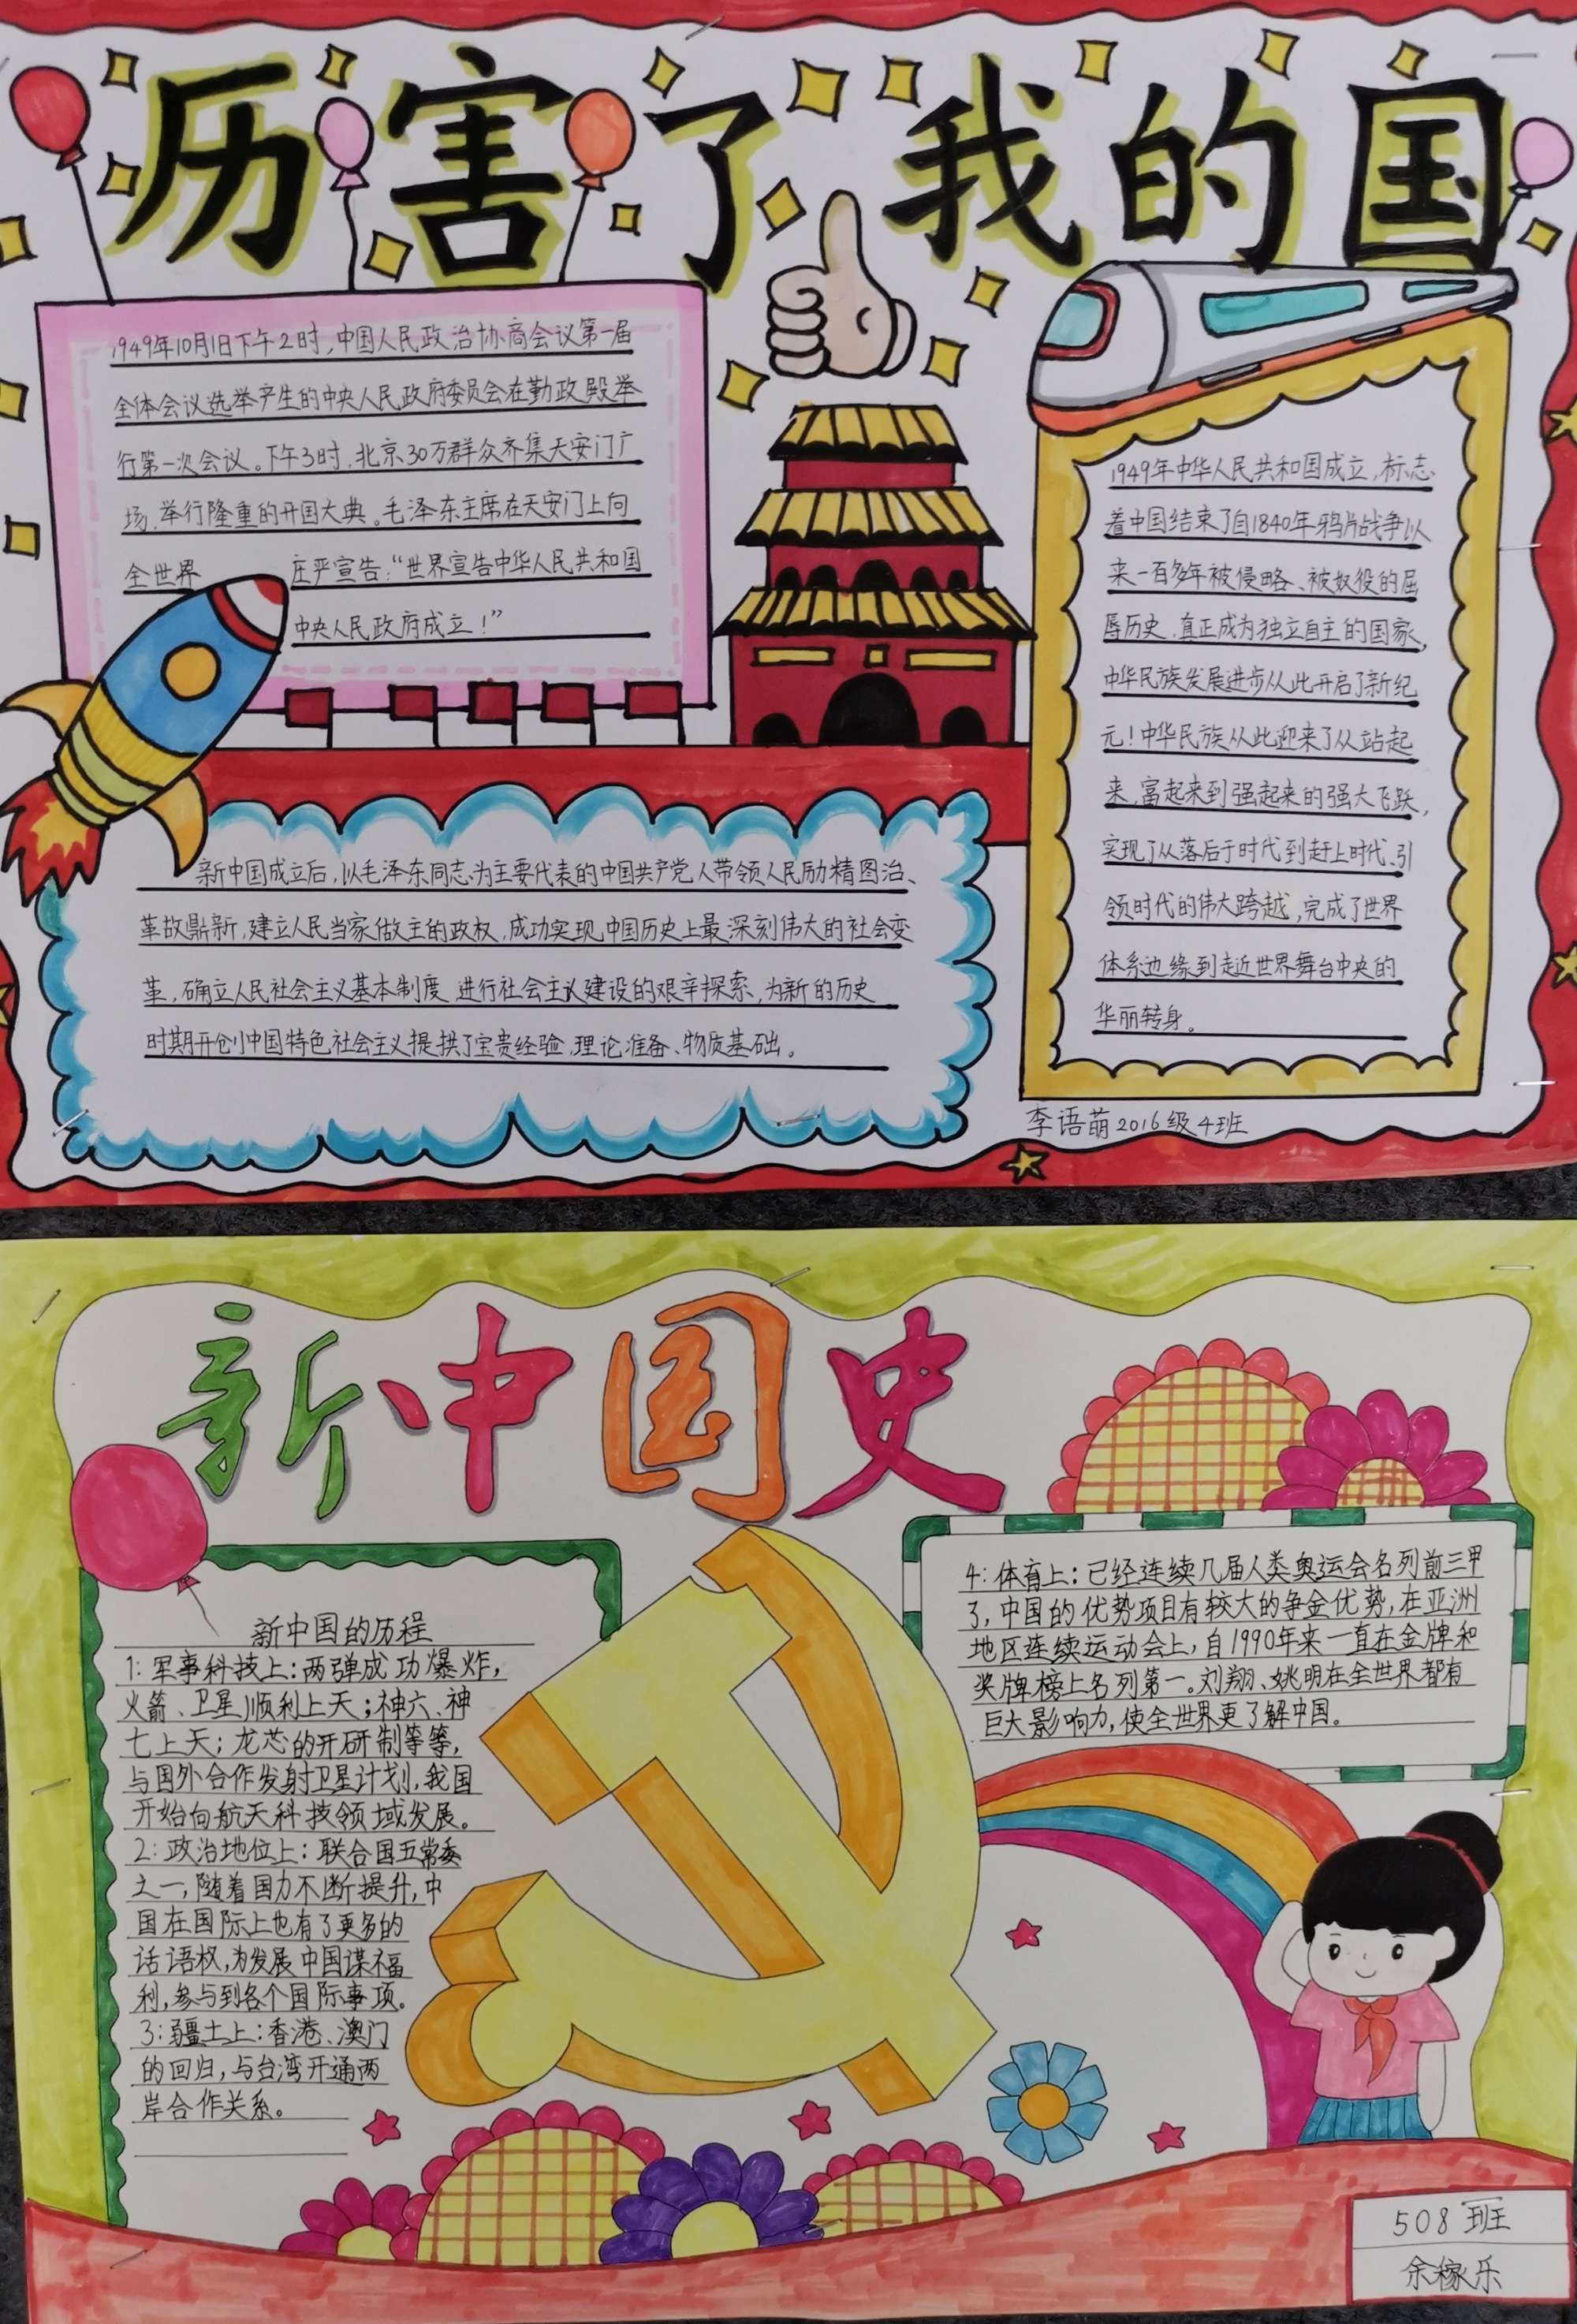 厉害了我的国
1949年10月1日下午2时,中国人民政治协商会议第一届
全体会议选举产生的中央人民政府委员会在勤政殿举
行第一次会议。下午3时,北京30万群众齐集天安门广
场,举行隆重的开国大典。毛泽东主席在天安门上向
全世界 庄严宣告:“世界宣告中华人民共和国
中央人民政府成立!”
1949年中华人民共和国成立,标志
着中国结束了自1840年鸦片战争以
来一百多年被侵略、被奴役的屈
辱历史,真正成为独立自主的国家,
中华民族发展进步从此开启了新纪
元!中华民族从此迎来了从站起
来,富起来到强起来的强大飞跃,
实现了从落后于时代到赶上时代、引
领时代的伟大跨越,完成了世界
体系边缘到走近世界舞台中央的
华丽转身。
新中国成立后,以毛泽东同志为主要代表的中国共产党人带领人民励精图治、
革故鼎新,建立人民当家做主的政权,成功实现中国历史上最深刻伟大的社会变
革,确立人民社会主义基本制度,进行社会主义建设的艰辛探索,为新的历史
时期开创中国特色社会主义提拱了宝贵经验,理论准备、物质基础。
李语萌2016级4班
新中国史
新中国的历程
1:军事科技上:两弹成功爆炸,
火箭、卫星顺利上天;神六、神
七上天;龙芯的开研制等等,
与国外合作发射卫星计划,我国
开始向航天科技领域发展。
2:政治地位上:联合国五常委
之一,随着国力不断提升,中
国在国际上也有了更多的
话语权,为发展中国谋福
利,参与到各个国际事项。
3:疆土上:香港、澳门
的回归,与台湾开通两
岸合作关系。
4:体育上:已经连续几届人类奥运会名列前三甲
了,中国的优势项目有较大的争金优势,在亚洲
地区连续运动会上,自1990年来一直在金牌和
奖牌榜上名列第一。刘翔、姚明在全世界都有
巨大影响力,使全世界更了解中国。
508班
余稼乐